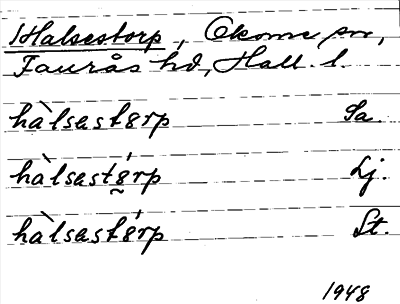 Halsestorp, Okome sn,
Faurås hd, Hall. l.
hàlsastɤrp Sa.
hàlsastɤ́rp Lj.
hàlsastɤ́rp St.
1948